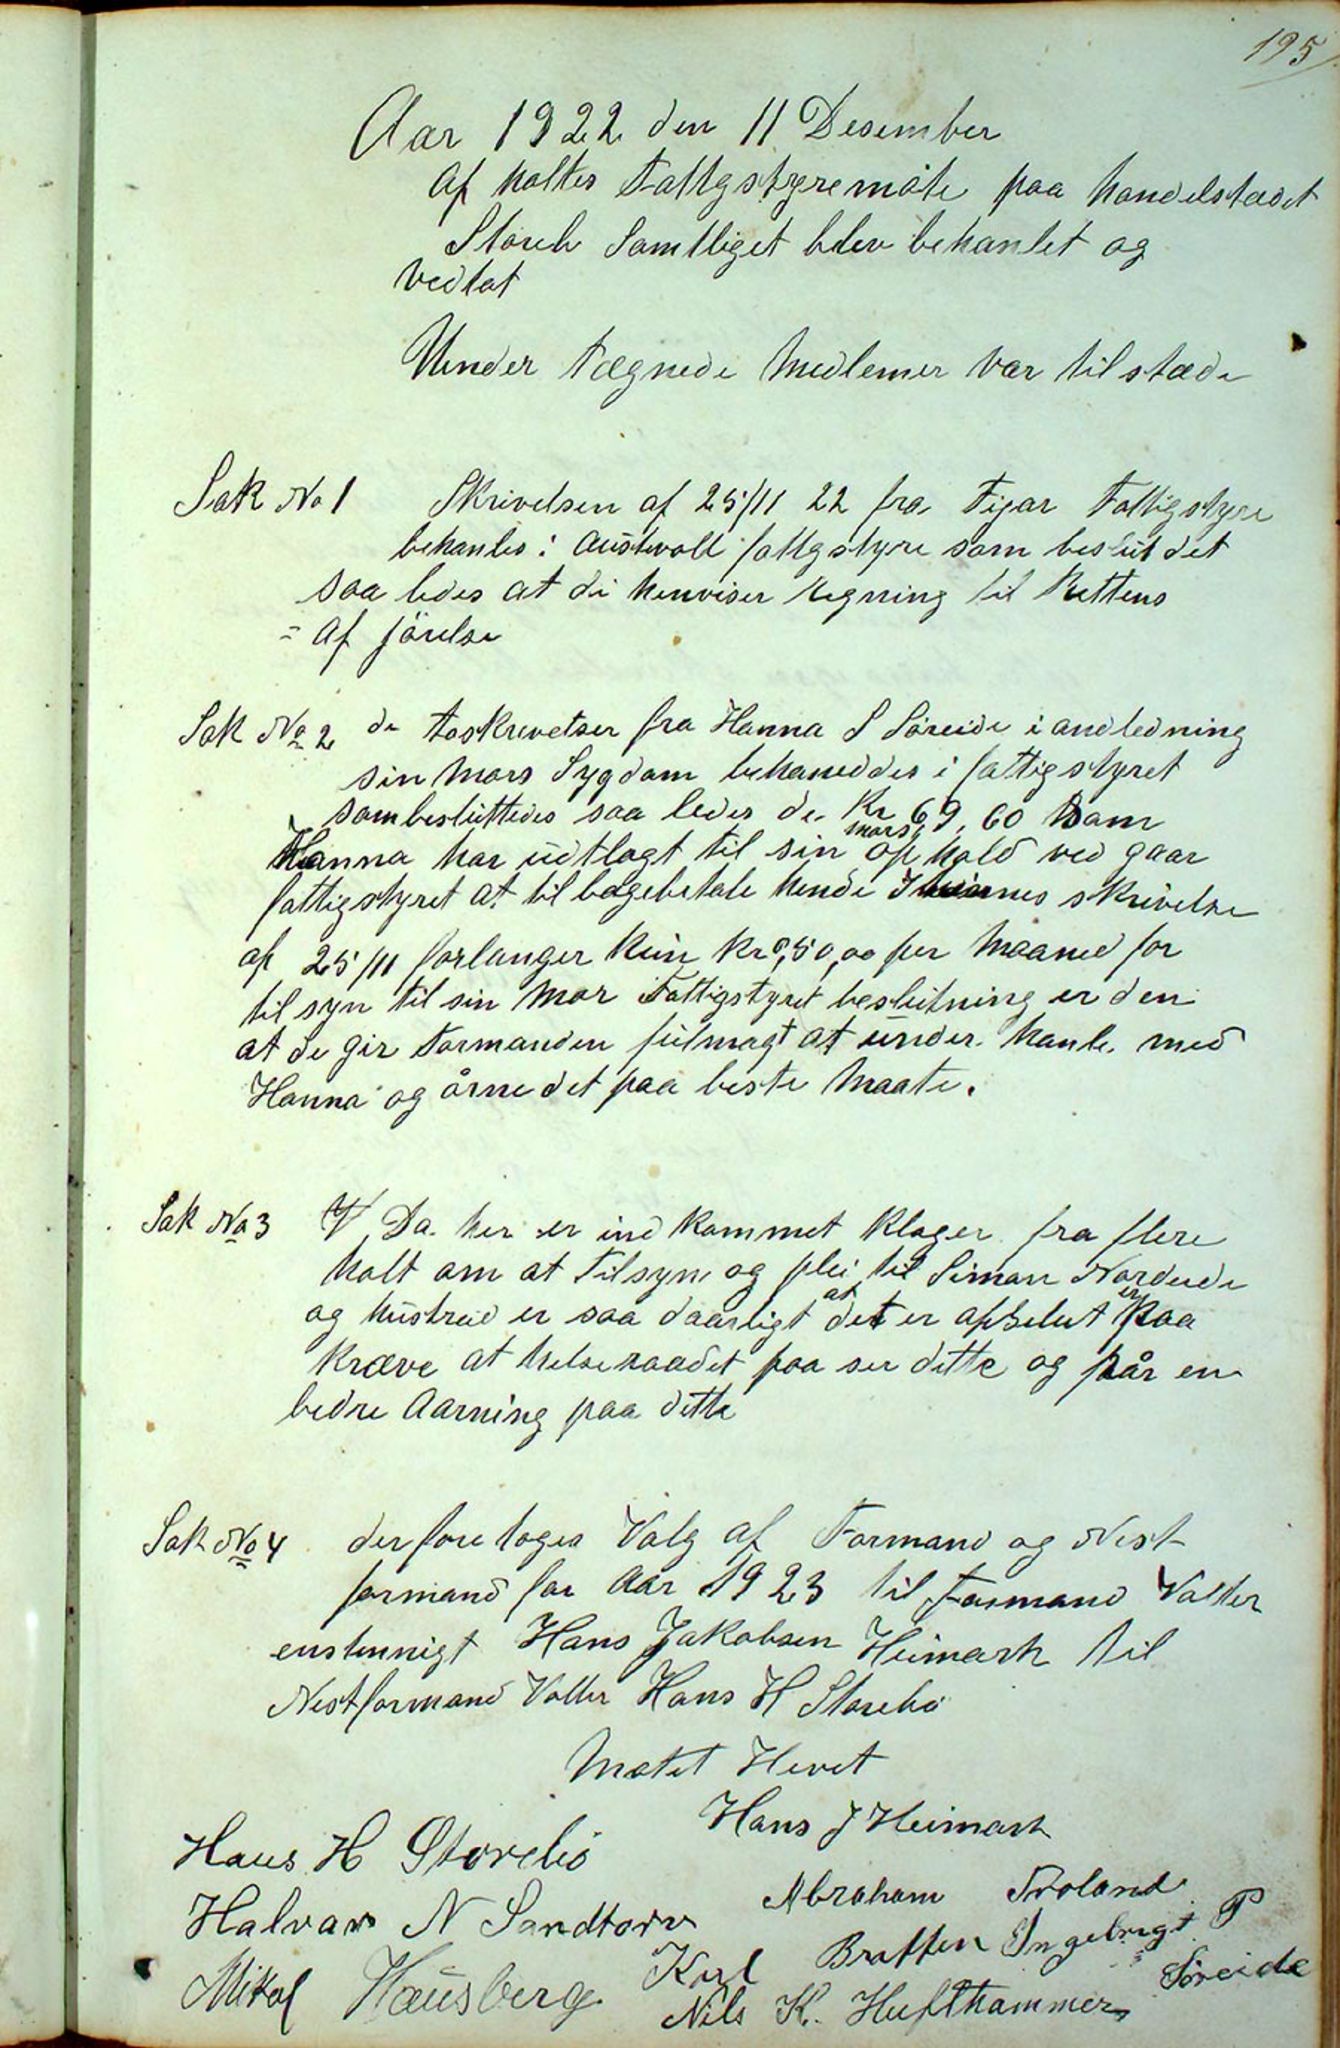 195
Aar 1922 den 11 Desember
af holtes Fattgstyremöte paa handelstædet
Storeb Samtliget blev behanlet og
vedtat
Under tægnede Medlemer var tilstæde
Sak No 1 Skrivelsen af 25/11 22 fra Fijar Fattigstyre
behanles i Austevoll fattgstyre som beslut det
saa ledes at di henviser Regning til Rettens
= Af jörelse
Sak No 2 de toskrivelser fra Hanna S Söreide i andledning
sin Mors Sygdom behaneddes i fattigstyret
som besluttedes saa ledes de Kr 69,60 som
Hanna har udtlagt til sin mors op hold ved gaar
fattigstyret at tilbagebetale hende skrivelse
af 25/11 forlanger kun Kr 50,00 per Maaned for
til syn til sin Mor Fattigstyret beslutning er den
at de gir Formanden fulmagt at under hanle med
Hanna og årne det paa beste Maate.
Sak No 3 Da her er ind kommet Klager fra flere
holt om at Tilsyn og plei til Simon Nordeide
og hustreid er saa daarligt at det er apselut er paa
kræve at helseraadet paa ser dette og får en
bedre Aarning paa dette
Sak No 4 der fore toges Valg af Formand og Nest-
formand for Aar 1923 til Formand Valter
enstennigt Hans Jakobsen Heimark til
Nestformand Valter Hans H Storebö
Møtet Hevet
Hans J Heimark
Haus H Storebö
Abraham Troland
Halvar N Sandtorv
Karl Bratten Ingebrigt P
Söreide
Mikal Hausberg
Nils K. Hufthammer